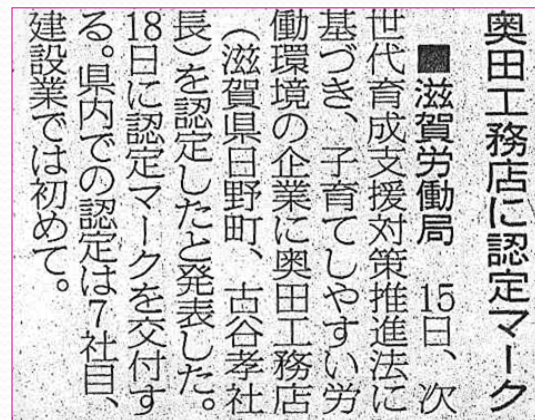 奥田工務店に認定マーク
■滋賀労働局　15日、次
世代育成支援対策推進法に
基づき、子育てしやすい労
働環境の企業に奥田工務店
（滋賀県日野町、古谷孝社
長）を認定したと発表した。
18日に認定マークを交付す
る。県内での認定は7社目、
建設業では初めて。